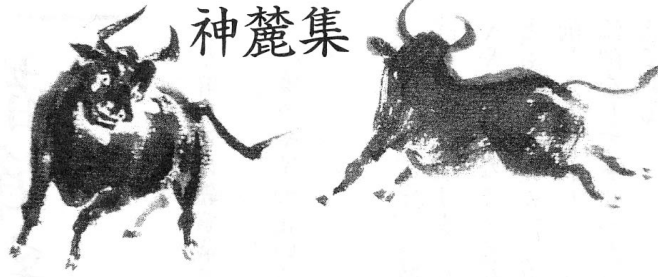 神麓集